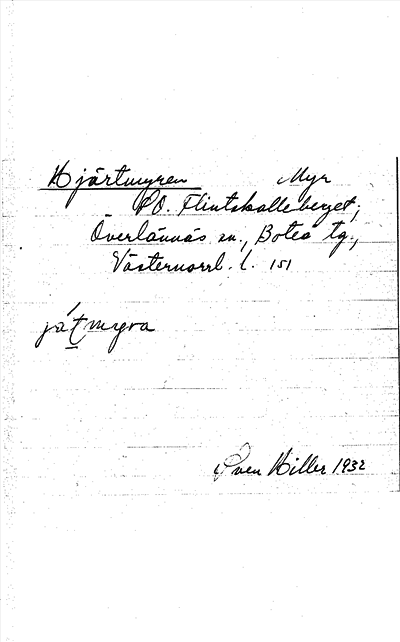 Hjärtmyren Myr
P.O. Flintskalleberget,
Överlännäs sn., Boteå tg.,
Västernorrl. l. 151
játmyra
Sven Hiller 1932